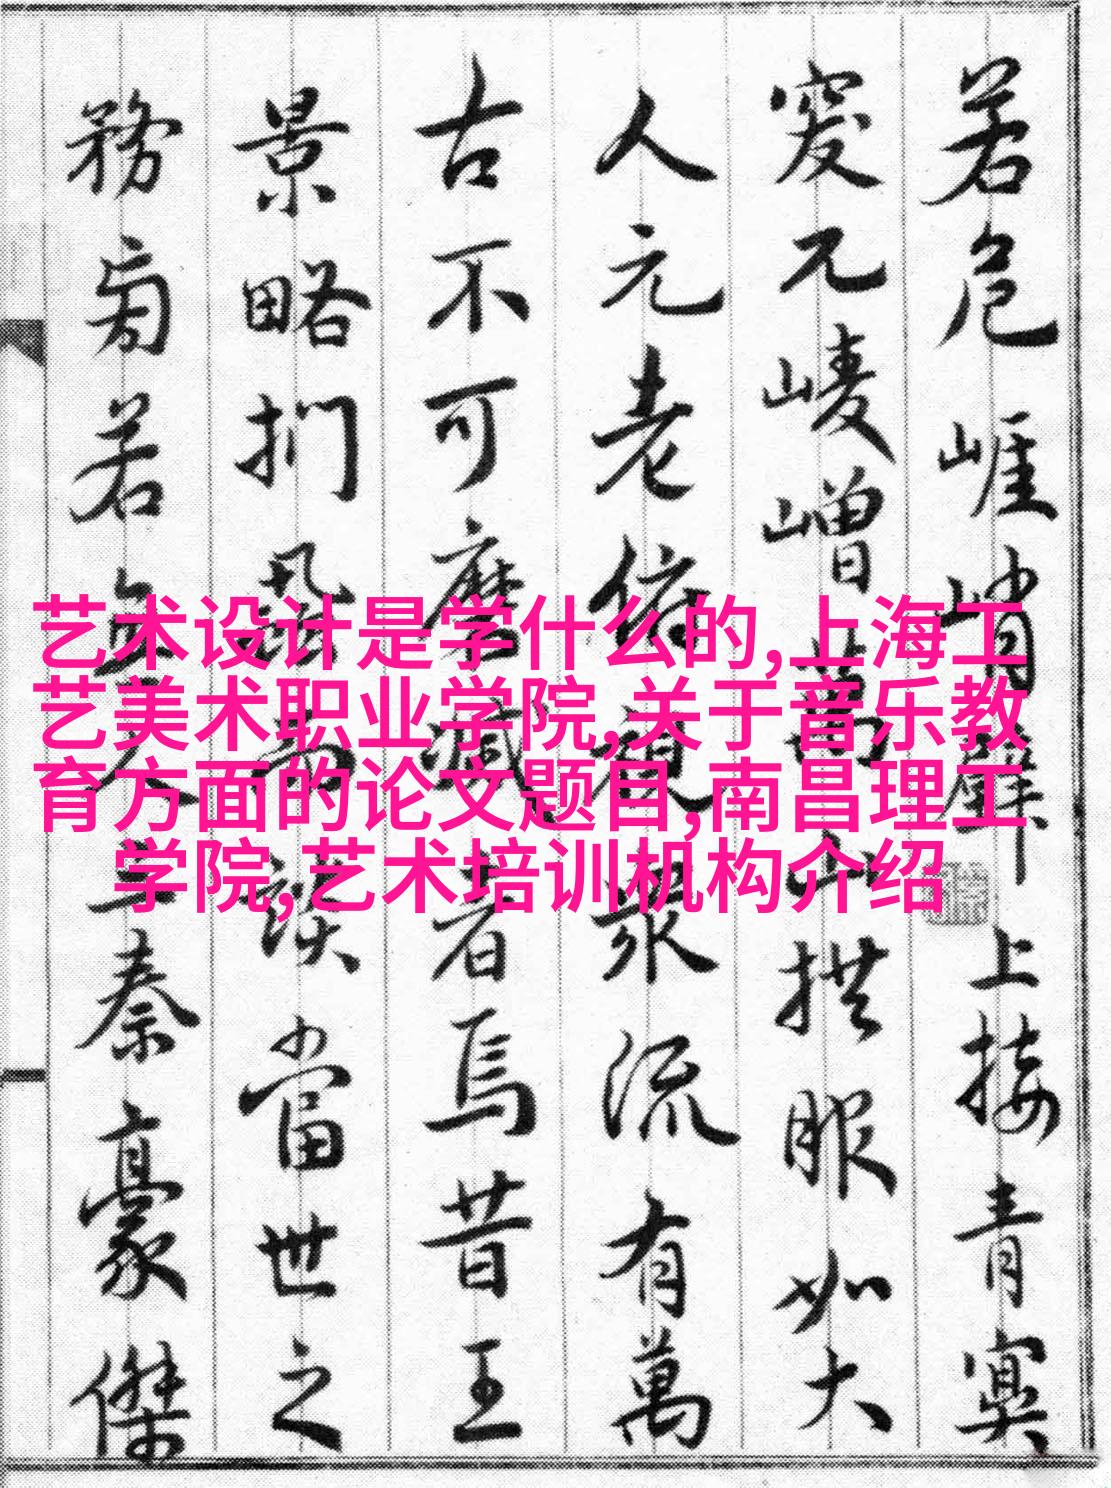 若危崕峭壁上接青冥
窔兀崚嶒萬山拱服如大
人元老俯視眾流有萬
古不可磨滅者焉昔王
景略捫蝨而談當世之
務旁若無人三秦豪傑
艺术设计是学什么的,上海工
艺美术职业学院,关于音乐教
育方面的论文题目,南昌理工
学院,艺术培训机构介绍